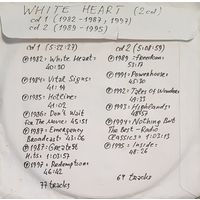 WHITE HEART (2cd)
cd 1 (1982-1987, 1997)
cd 2 (1989-1995)
cd 1 (5:22:27)
℗1982: White Heart:
40:30
℗1984: Vital Signs:
41:14
℗1985: Hotline:
41:02
℗1986: Don't Wait
For The Movie: 45:51
℗1987: Emergency
Broadcast: 43:26
℗1987: Greatest
Hits: 1:03:57
℗1997: Redemption:
46:42
77 tracks
cd 2 (5:08:59)
℗1989: Freedom:
℗1991: Powerhouse:
45:30
℗1992: Tales Of Wonder:
℗1993: Highlands:
48:57
℗1994: Nothing But
The Best - Radio
Classics: 1:02:13
℗1995: Inside:
48:26
64 tracks